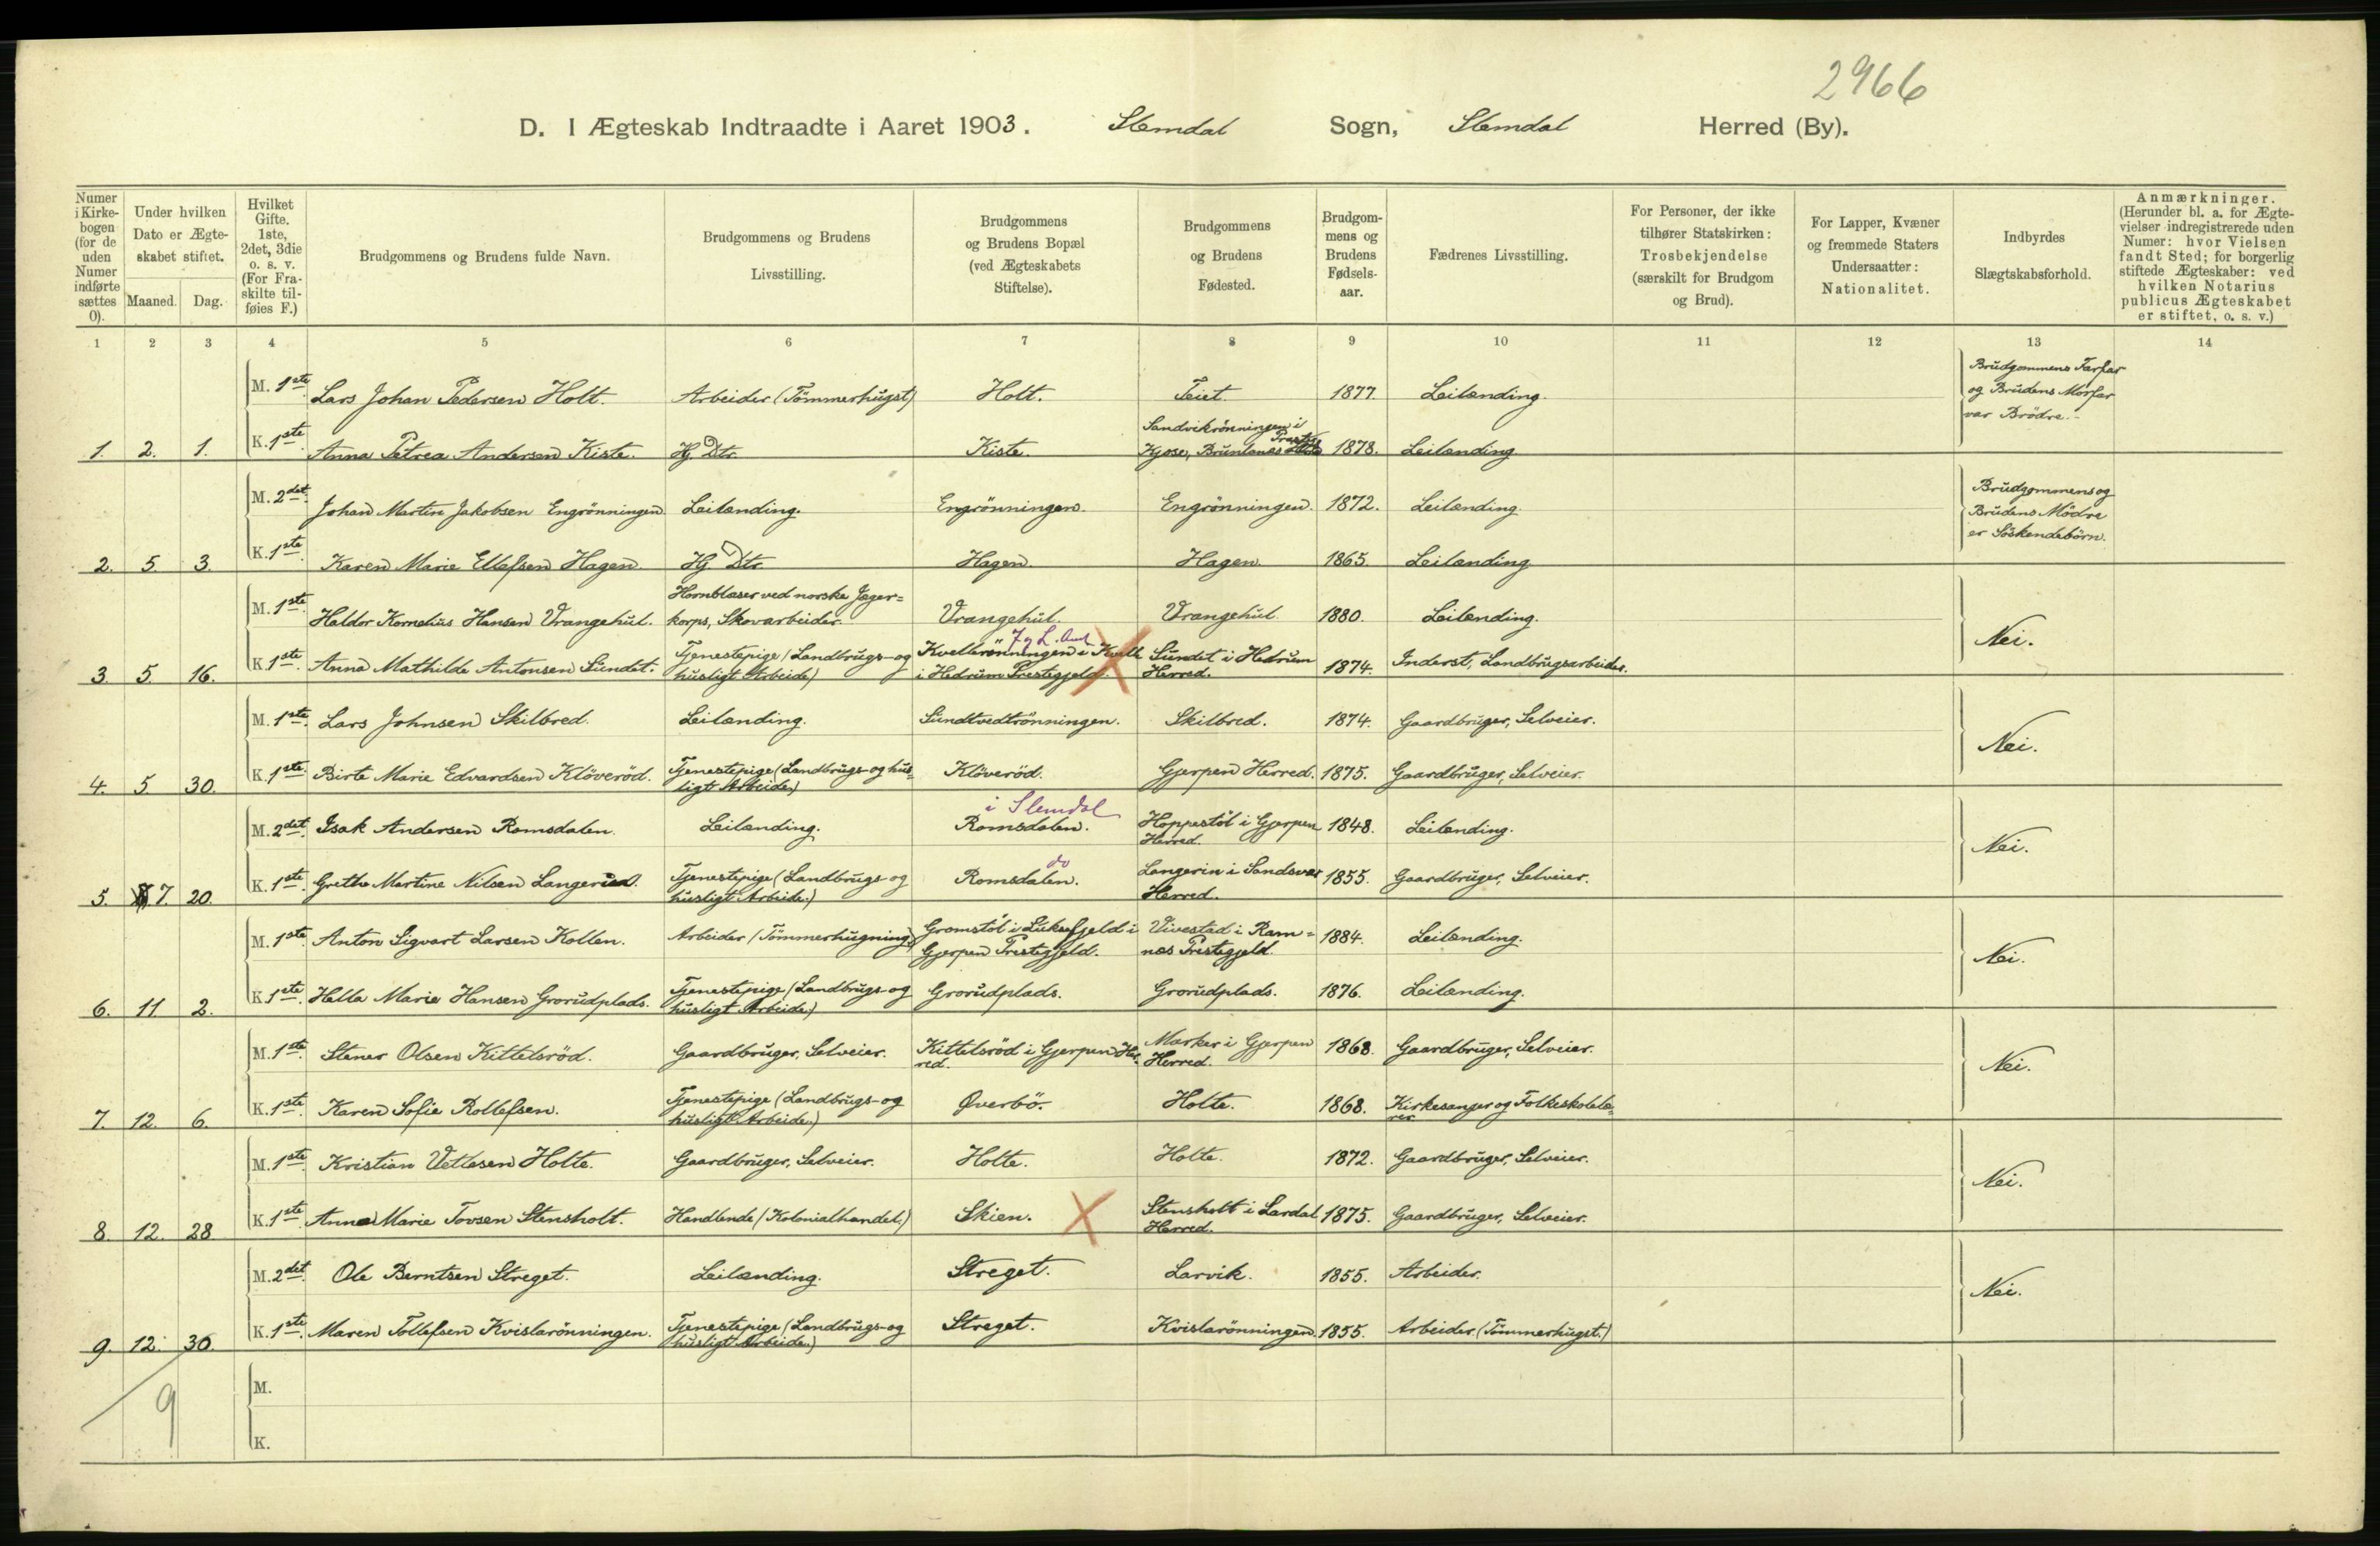 2966
D. I Ægteskab Indtraadte i Aaret 1903. Slemdal Sogn, Slemdal Herred (By).
Numer i Kirkebogen (for de uden Numer indførte sættes 0).
Under hvilken Dato er Ægteskabet stiftet.
Maaned. Dag.
Hvilket Gifte. 1ste, 2det, 3die o. s. v. (For Fraskilte tilføies F.)
Brudgommens og Brudens fulde Navn.
Brudgommens og Brudens Livsstilling.
Brudgommens og Brudens Bopæl (ved Ægteskabets Stiftelse).
Brudgommens og Brudens Fødested.
Brudgommens og Brudens Fødselsaar.
Fædrenes Livsstilling.
For Personer, der ikke tilhører Statskirken: Trosbekjendelse (særskilt for Brudgom og Brud).
For Lapper, Kvæner og fremmede Staters Undersaatter: Nationalitet.
Indbyrdes Slægtskabsforhold.
Anmærkninger. (Herunder bl. a. for Ægtevielser indregistrerede uden Numer: hvor Vielsen fandt Sted; for borgerlig stiftede Ægteskaber: ved hvilken Notarius publicus Ægteskabet er stiftet, o. s. v.)
1 2 3 4 5 6 7 8 9 10 11 12 13 14
M. 1ste Lars Johan Pedersen Holt. Arbeider (Tömmerhugst) Holt. Teiet. 1877. Leilænding. Brudgommens Farfar og Brudens Morfar var Brödre.
1. 2. 1. K. 1ste Anna Petrea Andersen Kiste. Hj. Dtr. Kiste. Sandvikrönningen i Kjose, Brunlanes 1878. Leilænding
M. 2det Johan Martin Jakobsen Engrönningen Leilænding. Engrönningen. Engrönningen. 1872. Leilænding. Brudgommens og Brudens Mödre er Söskendebörn.
2. 5. 3. K. 1ste Karen Marie Ellefsen Hagen Hj Dtr. Hagen. Hagen. 1865. Leilænding
M. 1ste Haldor Kornelius Hansen Vrangehul. Hornblæser ved norske Jægerkorps, Skovarbeider. Vrangehul. Vrangehul 1880. Leilænding. Nei.
J. g L. Amt
3. 5. 16. K. 1ste Anna Mathilde Antonsen Sundet. Tjenestepige (Landbrugs- og husligt Arbeide) Kvellerönningen i Kvelle i Hedrum Prestegjeld. Sundet i Hedrum Herred. 1874. Inderst, Landbrugsarbeider.
M. 1ste Lars Johnsen Skilbred. Leilænding. Sundtvedtrönningen. Skilbred. 1874. Gaardbruger, Selveier. Nei.
4. 5. 30. K. 1ste Birte Marie Edvardsen Klöveröd. Tjenestepige (Landbrugs- og husligt Arbeide) Klöveröd. Gjerpen Herred. 1875. Gaardbruger, Selveier.
i Slemdal
M. 2det Isak Andersen Romsdalen. Leilænding. Romsdalen. Hoppestöl i Gjerpen Herred. 1848. Leilænding. Nei.
do
5. 7. 20. K. 1ste Grethe Martine Nilsen Langerien. Tjenestepige (Landbrugs- og husligt Arbeide.) Romsdalen. Langerin i Sandsvær Herred. 1855. Gaardbruger, Selveier.
M. 1ste Anton Sigvart Larsen Kollen. Arbeider (Tömmerhugning) Gromstöl i Luksefjeld i Gjerpen Prestegjeld. Vivestad i Ramnæs Prestegjeld. 1884. Leilænding. Nei.
6. 11. 2. K. 1ste Hella Marie Hansen Grorudplads. Tjenestepige (Landbrugs- og husligt Arbeide) Grorudplads. Grorudplads. 1876. Leilænding.
M. 1ste Stener Olsen Kittelsröd. Gaardbruger, Selveier. Kittelsröd i Gjerpen Herred. Marker i Gjerpen Herred. 1868. Gaardbruger, Selveier. Nei.
7. 12. 6. K. 1ste Karen Sofie Rollefsen. Tjenestepige (Landbrugs- og husligt Arbeide.) Øverbö. Holte. 1868. Kirkesanger og Folkeskolelærer
M. 1ste Kristian Vetlesen Holte. Gaardbruger, Selveier. Holte. Holte. 1872. Gaardbruger, Selveier. Nei.
8. 12. 28 K. 1ste Anna Marie Tovsen Stensholt. Handlende (Kolonialhandel.) Skien. Stensholt i Lardal Herred. 1875. Gaardbruger, Selveier.
M. 2det Ole Berntsen Streget. Leilænding. Streget. Larvik. 1855. Arbeider. Nei.
9. 12. 30. K. 1ste Maren Tollefsen Kvislarönningen. Tjenestepige (Landbrugs- og husligt Arbeide.) Streget. Kvislarönningen. 1855. Arbeider. (Tömmerhugst.)
M.
9
K.